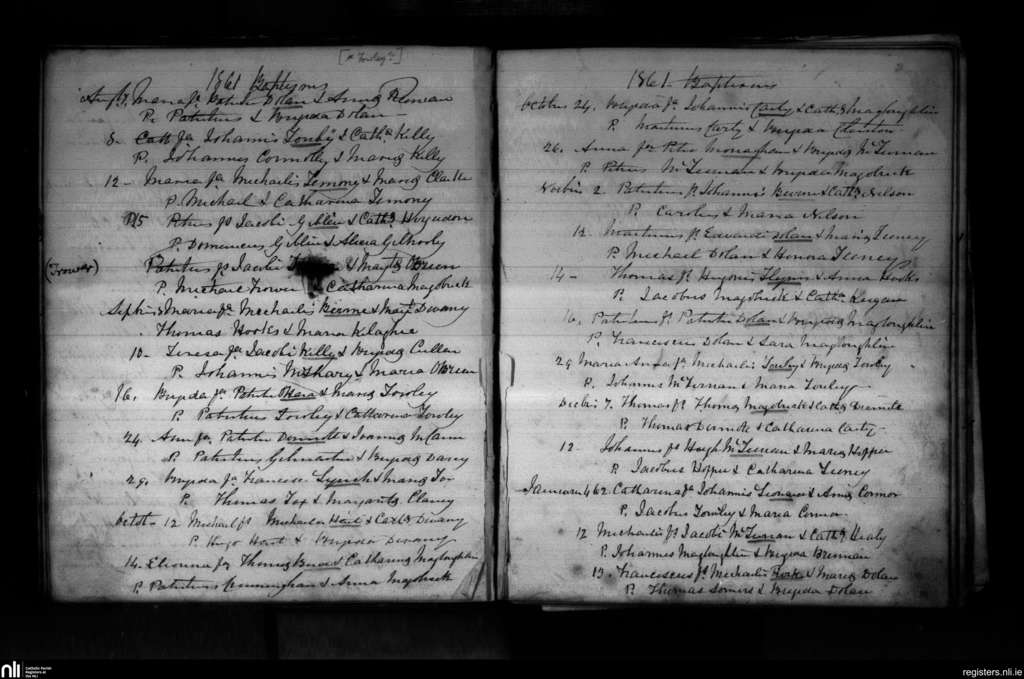 [* Towley *]
1861 Baptisms
7. Maria fa Patritii Dolan & Anna
P. Patritius & Brigida Dolan
8. Cath fa Johannis Towley & Catha Kelly
P. Johannes Connolly & Maria Kelly
12 - Maria fa Michaelis Timony & Maria Clarke
P. Michael & Catharina Timony
15 Petrus fs Jacobi Giblin & Catha
P. Domenicus Giblin & Alicia Gilhooly
(Trower)
Patritius fs Jacobi & Margta OBrien
P. Michael Trower & Catharina Magobrick
Septbris Maria fa Michaelis Beirne & Margt Devany
Thomas Hooks & Maria Kilaghne
10 - Teresa fa Jacobi Kelly & Brigida Cullen
P. Johannis McSharry & Maria OBrien
16. Brigida fa Patritii OHara & Maria Towley
P. Patritius Towley & Catharina Towley
24. Ann fa Patritii Dermott & Joanna McCann
P. Patritius Gilmartin & Brigida Darcy
29. Brigida fa Francisci Lynch & Maria Fox
P. Thomas Fox & Margarita Clancy
Octob - 12 Michael fs Michaelis Hart & Catha Devany
P. Hugo Hart & Brigida Devany
14. Elionna fa Thomas & Catharina Magloughlin
P. Patritius Cunningham & Anna Magobrick
1861 Baptisms
October 24. Brigida fa Johannis Carty & Cath. Magloughlin
P. Martinus Carty & Brigida
26. Anna fa Petri Monaghan & Brigida McTiernan
P. Petrus McTiernan & Brigida Magobrick
Novbris 2. Patritius fs Johannis Beirne & Catha Nelson
P. Carolus & Maria Nelson
12. Martinus fs Edwardi Dolan & Maria Feeney
P. Michael Dolan & Honora Feeney
14 - Thomas fs Hugonis Flynn & Anna Hooks
P. Jacobus Magobrick & Catha Keegan
16. Patritius fs Patritii Dolan & Brigida Magloughlin
P. Franciscus Dolan & Sara Magloughlin
29 Maria Anna fa Michaelis Towley & Brigida Towley
P. Johannes McTernan & Maria Towley
Decbris 7. Thomas fs Thomas Magobrick & Catha Dermott
P. Thomas Dermott & Catharina Carty
12 Johannes fs Hugh McTiernan & Maria Hopper
P. Jacobus Hopper & Catharina Feeney
January 4 62. Catharina fa Johannis Leonard & Anna Connor
P. Jacobus Towley & Maria Connor
12 Michaelis fs Jacobi McTernan & Catha Healy
P. Johannes Magloughlin & Brigida Brennan
13. Franciscus fs Michaelis Rork & Maria Dolan
P. Thomas Somers & Brigida Dolan
nli
Catholic Parish
Registers at
the NLI
registers.nli.ie